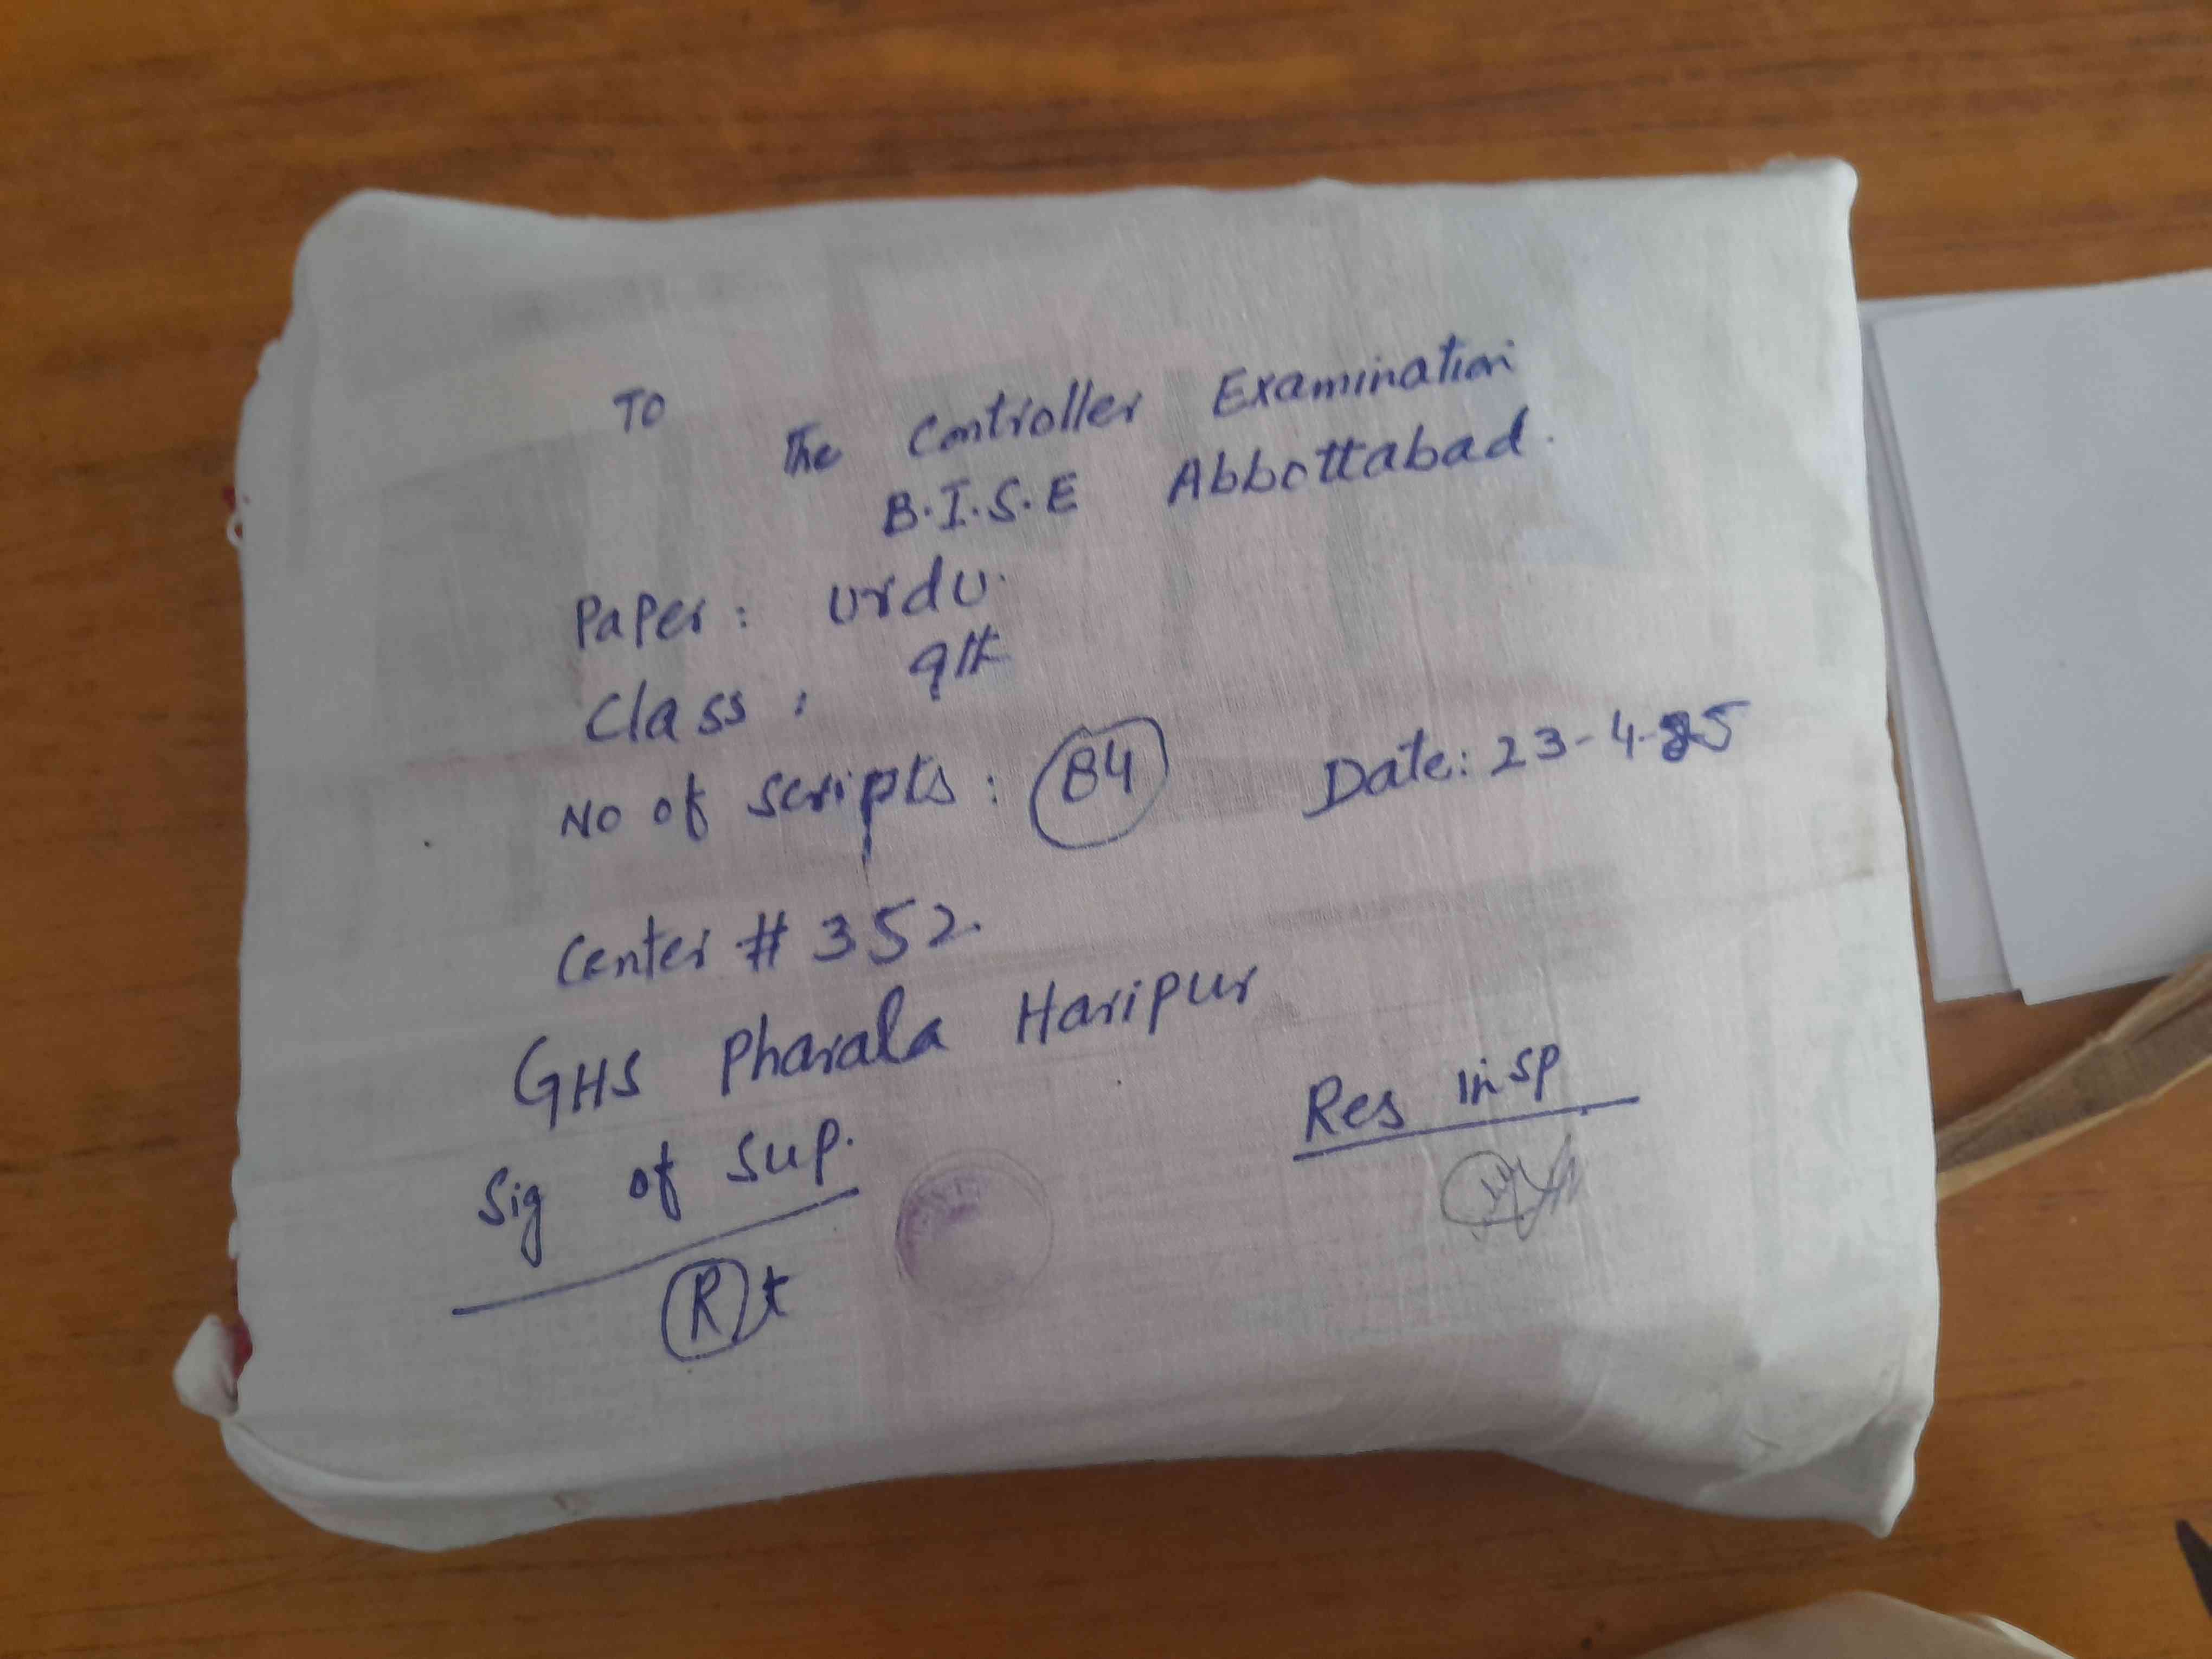 TO
The Controller Examination
B.I.S.E Abbottabad.
Paper: Urdu.
Class: 9th
No of scripts: 84 Date: 23-4-25
Center # 352.
GHS Pharala Haripur
Sig of Sup. Res insp
R t